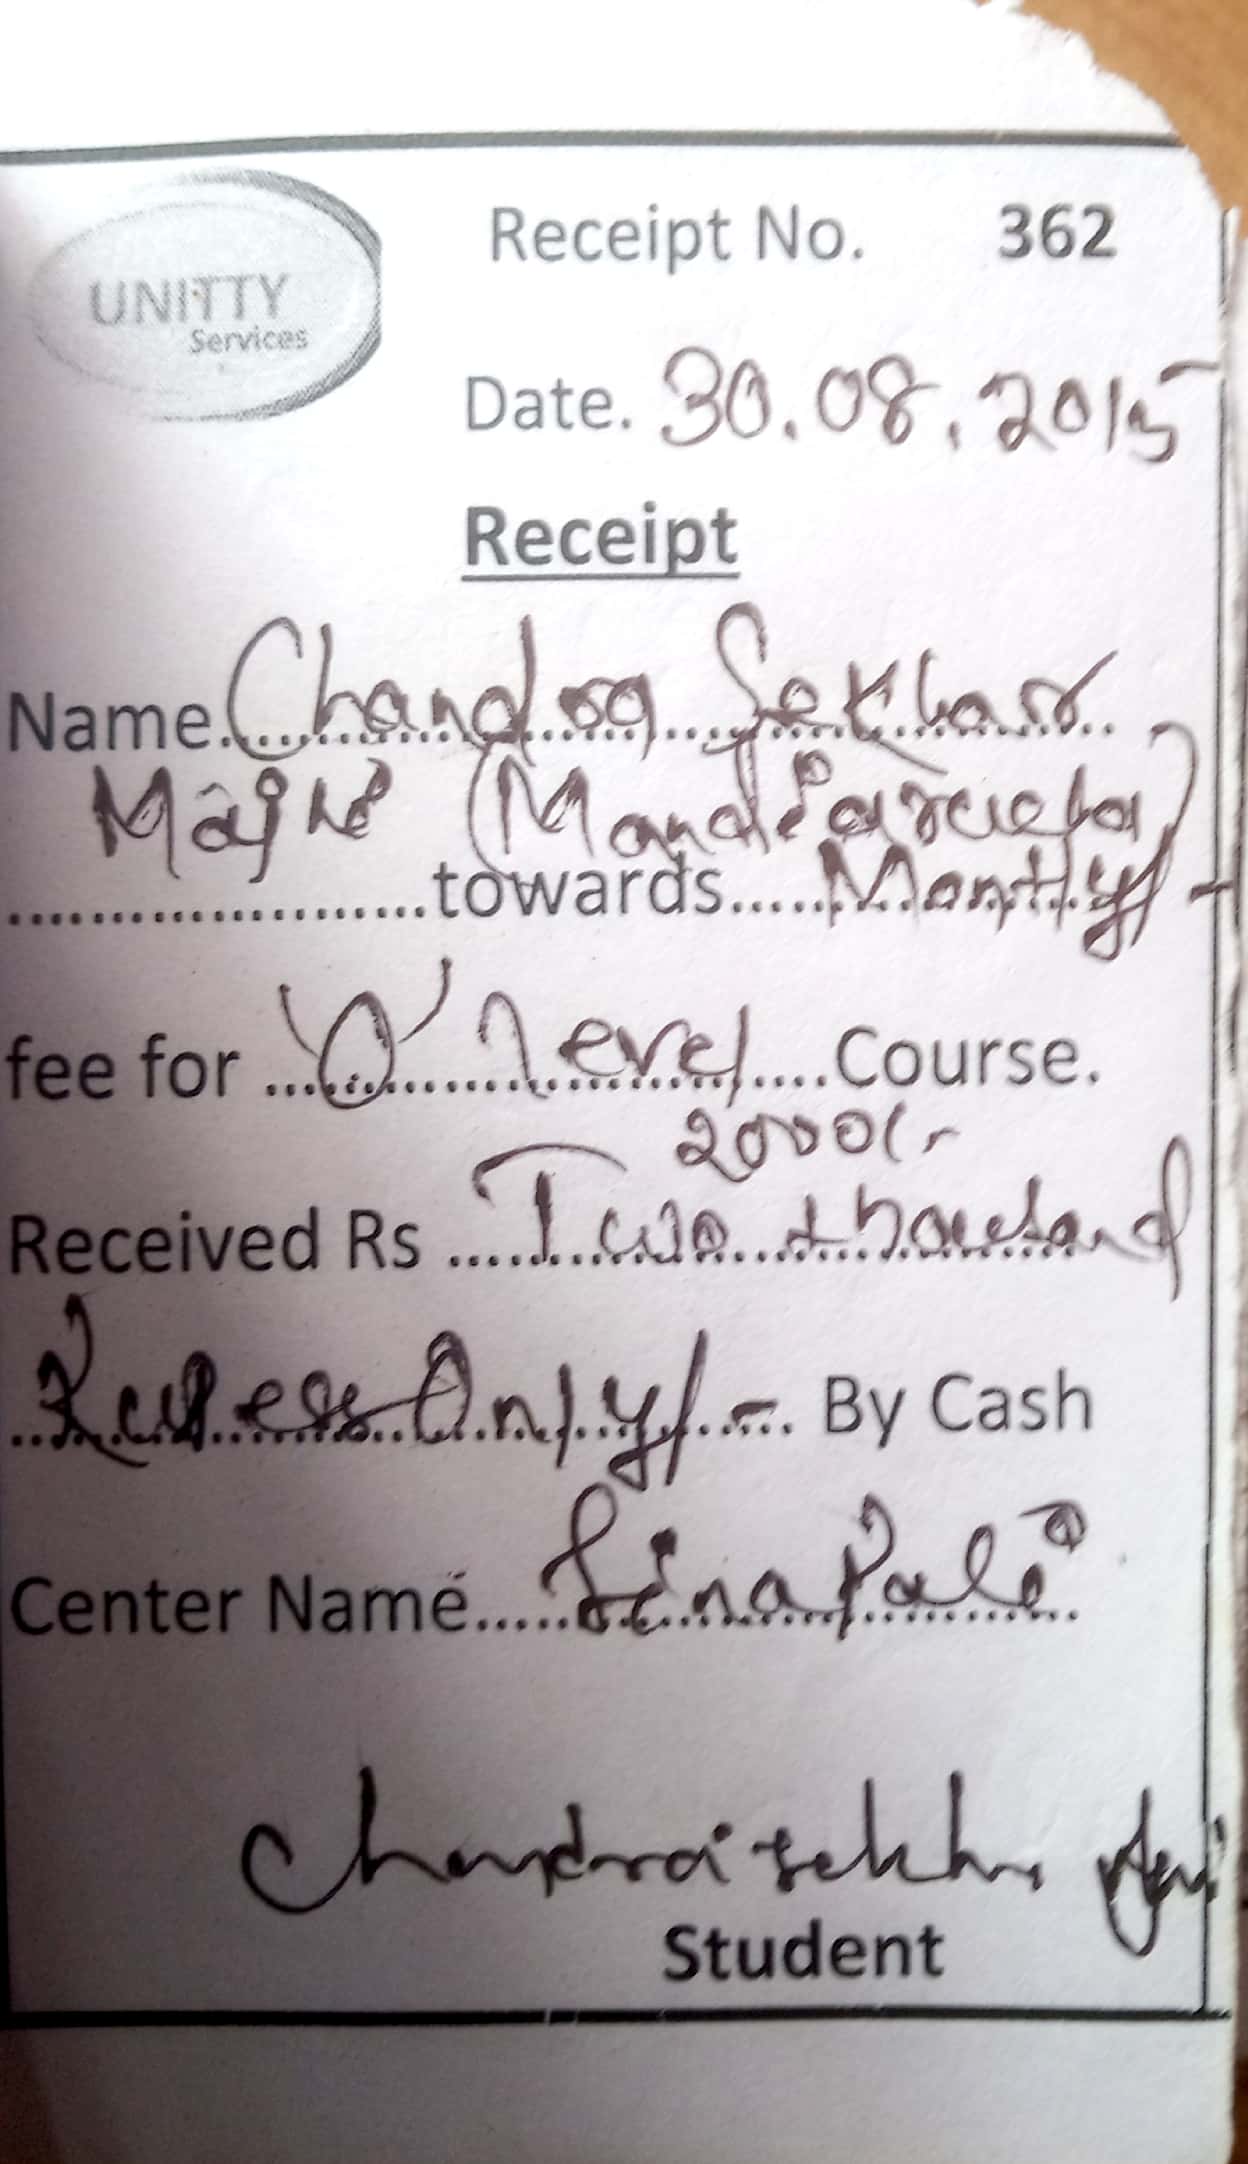 UNITTY
Services
Receipt No. 362
Date. 30.08.2015
Receipt
Name. Chandra Sekhar
Majhi
towards Montly/-
fee for 'O' level Course.
2000/-
Received Rs Two thousand
Rupees Only/- By Cash
Center Name Sinapali
Chandra sekhar
Student